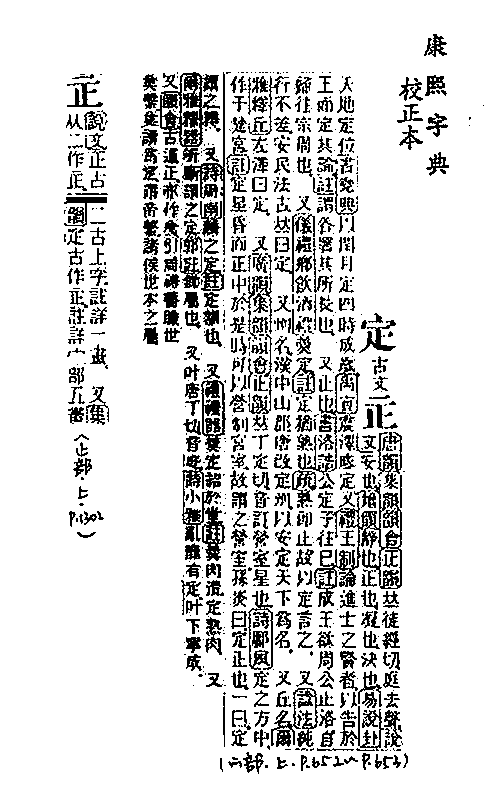 康熙字典
校正本
定 古文 唐韻集韻韻會正韻𠀤徒徑切庭去聲說
文安也增韻靜也正也凝也決也易說卦
天地定位書堯典以閏月定四時成歲禹貢震澤底定又禮王制論進士之賢者以告於
王而定其論註謂各署其所長也 又止也書洛誥公定予往已註成王欲周公止洛自
歸往宗周也 又儀禮鄉飲酒禮羹定註定猶熟也疏熟卽止故以定言之 又諡法純
行不差安民法古𠀤曰定 又州名漢中山郡唐改定州以安定天下爲名 又丘名爾
雅釋丘左澤曰定 又廣韻集韻韻會正韻𠀤丁定切音訂營室星也詩鄘風定之方中
作于楚宮註定星昏而正中於是時可以營制宮室故謂之營室孫炎曰定正也一曰定
謂之耨 又詩周南麟之定註定額也 又禮禮器羹定詔於堂註羹肉湆定熟肉 又
爾雅釋器斪斸謂之定郭註鋤屬也 又叶唐丁切音庭詩小雅亂靡有定叶下寧成
又韻會古通正亦作奠引周禮瞽矇世
奠繫奠讀爲定謂帝繫諸侯世本之屬
(宀部·上·P.652~P.653)
說文正古
从二作 二古上字註詳一畫 又集
韻定古作 註詳宀部五畫 (止部·上·P.1302)